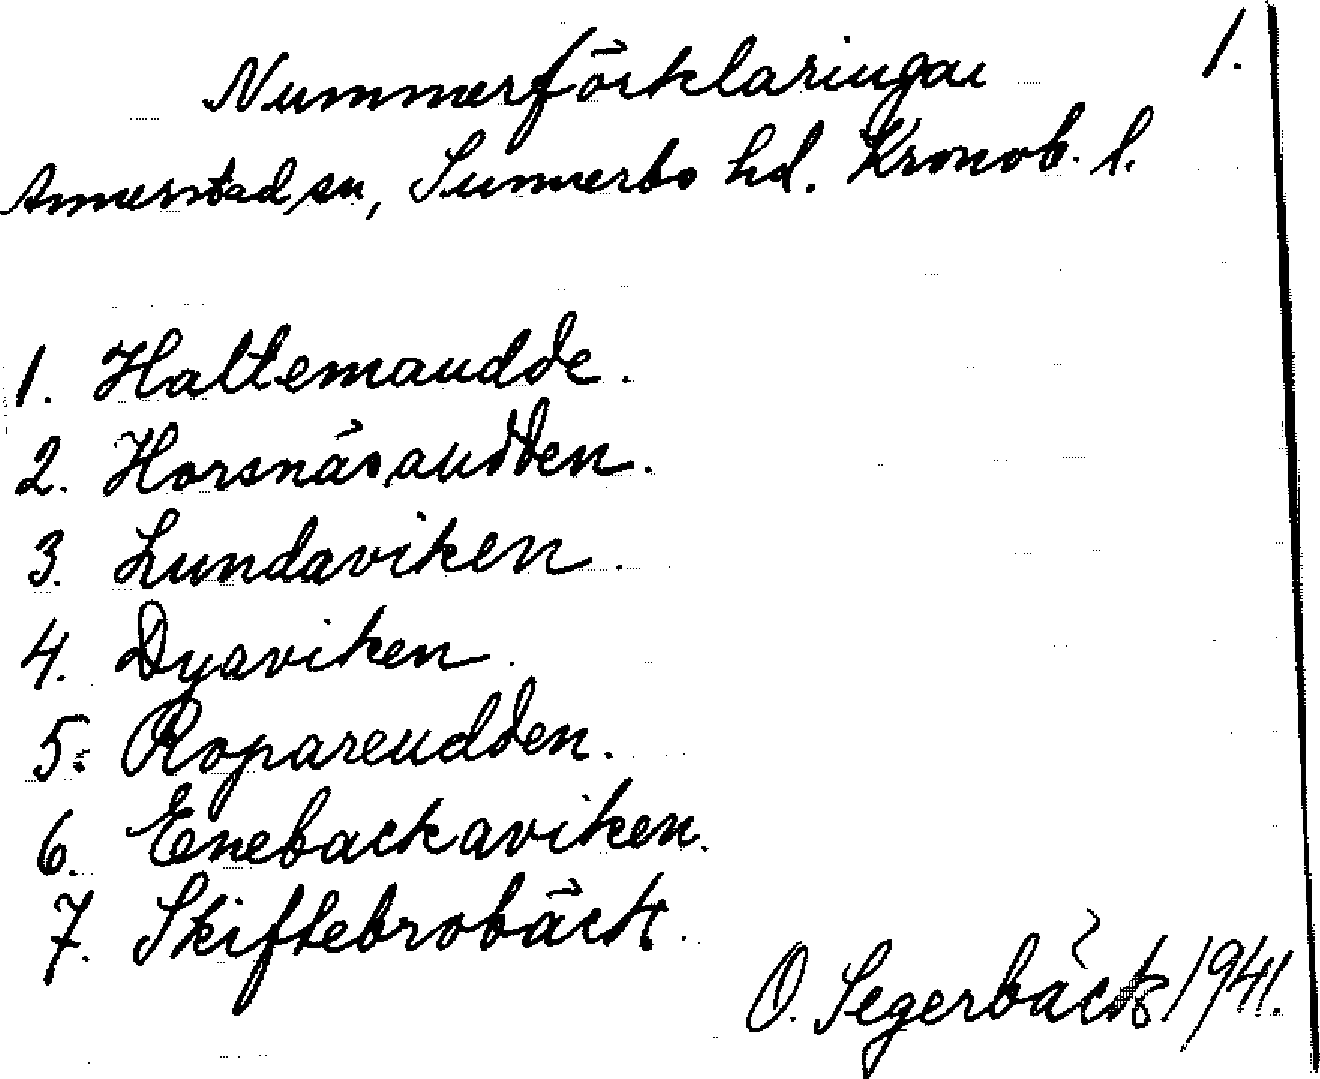 1.
Nummerförklaringar
Annerstad sn, Sunnerbo hd. Kronob. l.
1. Haltemaudde.
2. Horsnäsaudden.
3. Lundaviken.
4. Dyaviken.
5. Ropareudden.
6. Enebackaviken.
7. Skiftebrobäck.
O. Segerbäck 1941.